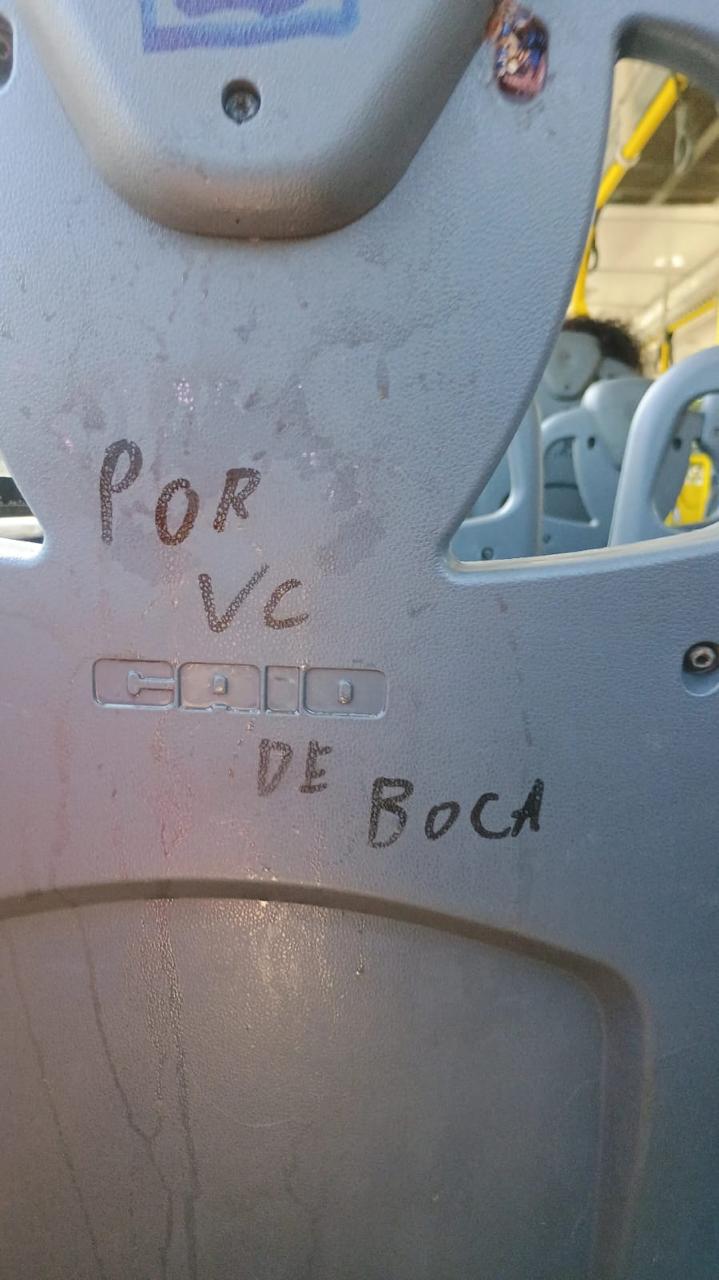 POR
VC
CAIO
DE
BOCA